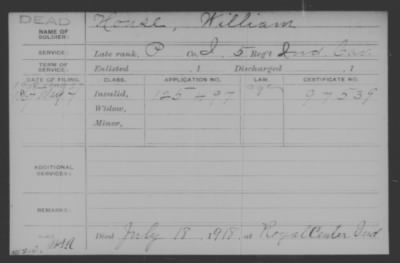 DEAD
NAME OF SOLDIER:
House, William
SERVICE:
Late rank, P Co. I, 5 Reg't Ind Cav.
TERM OF SERVICE:
Enlisted , 1 Discharged , 1
DATE OF FILING. CLASS. APPLICATION NO. LAW. CERTIFICATE NO.
Invalid, 125497 97539
Widow,
Minor,
ADDITIONAL SERVICES:
REMARKS:
Died July 18, 1918, at Royal Center Ind